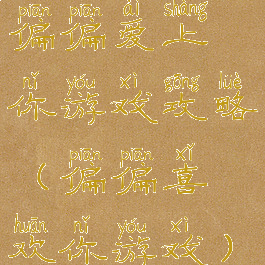 piān piān ài shàng
偏偏爱上
nǐ yóu xì gōng lüè
你游戏攻略
piān piān xǐ
（偏偏喜
huān nǐ yóu xì
欢你游戏）